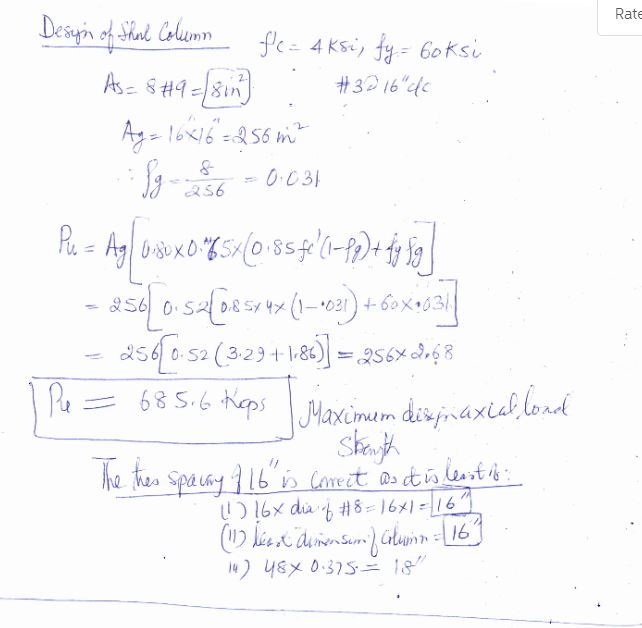 Rate
Design of Short Column f'c = 4 ksi, fy = 60 ksi
As = 8 #9 = 8 in² #3 @ 16" c/c
Ag = 16" x 16" = 256 in²
∴ ρg = 8/256 = 0.031
Pu = Ag [0.80 x 0.65 x (0.85 fc' (1-ρg) + fy ρg]
= 256 [0.52 [0.85 x 4 x (1-.031) + 60 x .031]
= 256 [0.52 (3.29 + 1.86)] = 256 x 2.68
Pu = 685.6 Kips Maximum design axial load
Strength
The ties spacing of 16" is correct as it is least of:
(i) 16 x dia of #8 = 16 x 1 = 16"
(ii) least dimension of column = 16"
iii) 48 x 0.375 = 18"